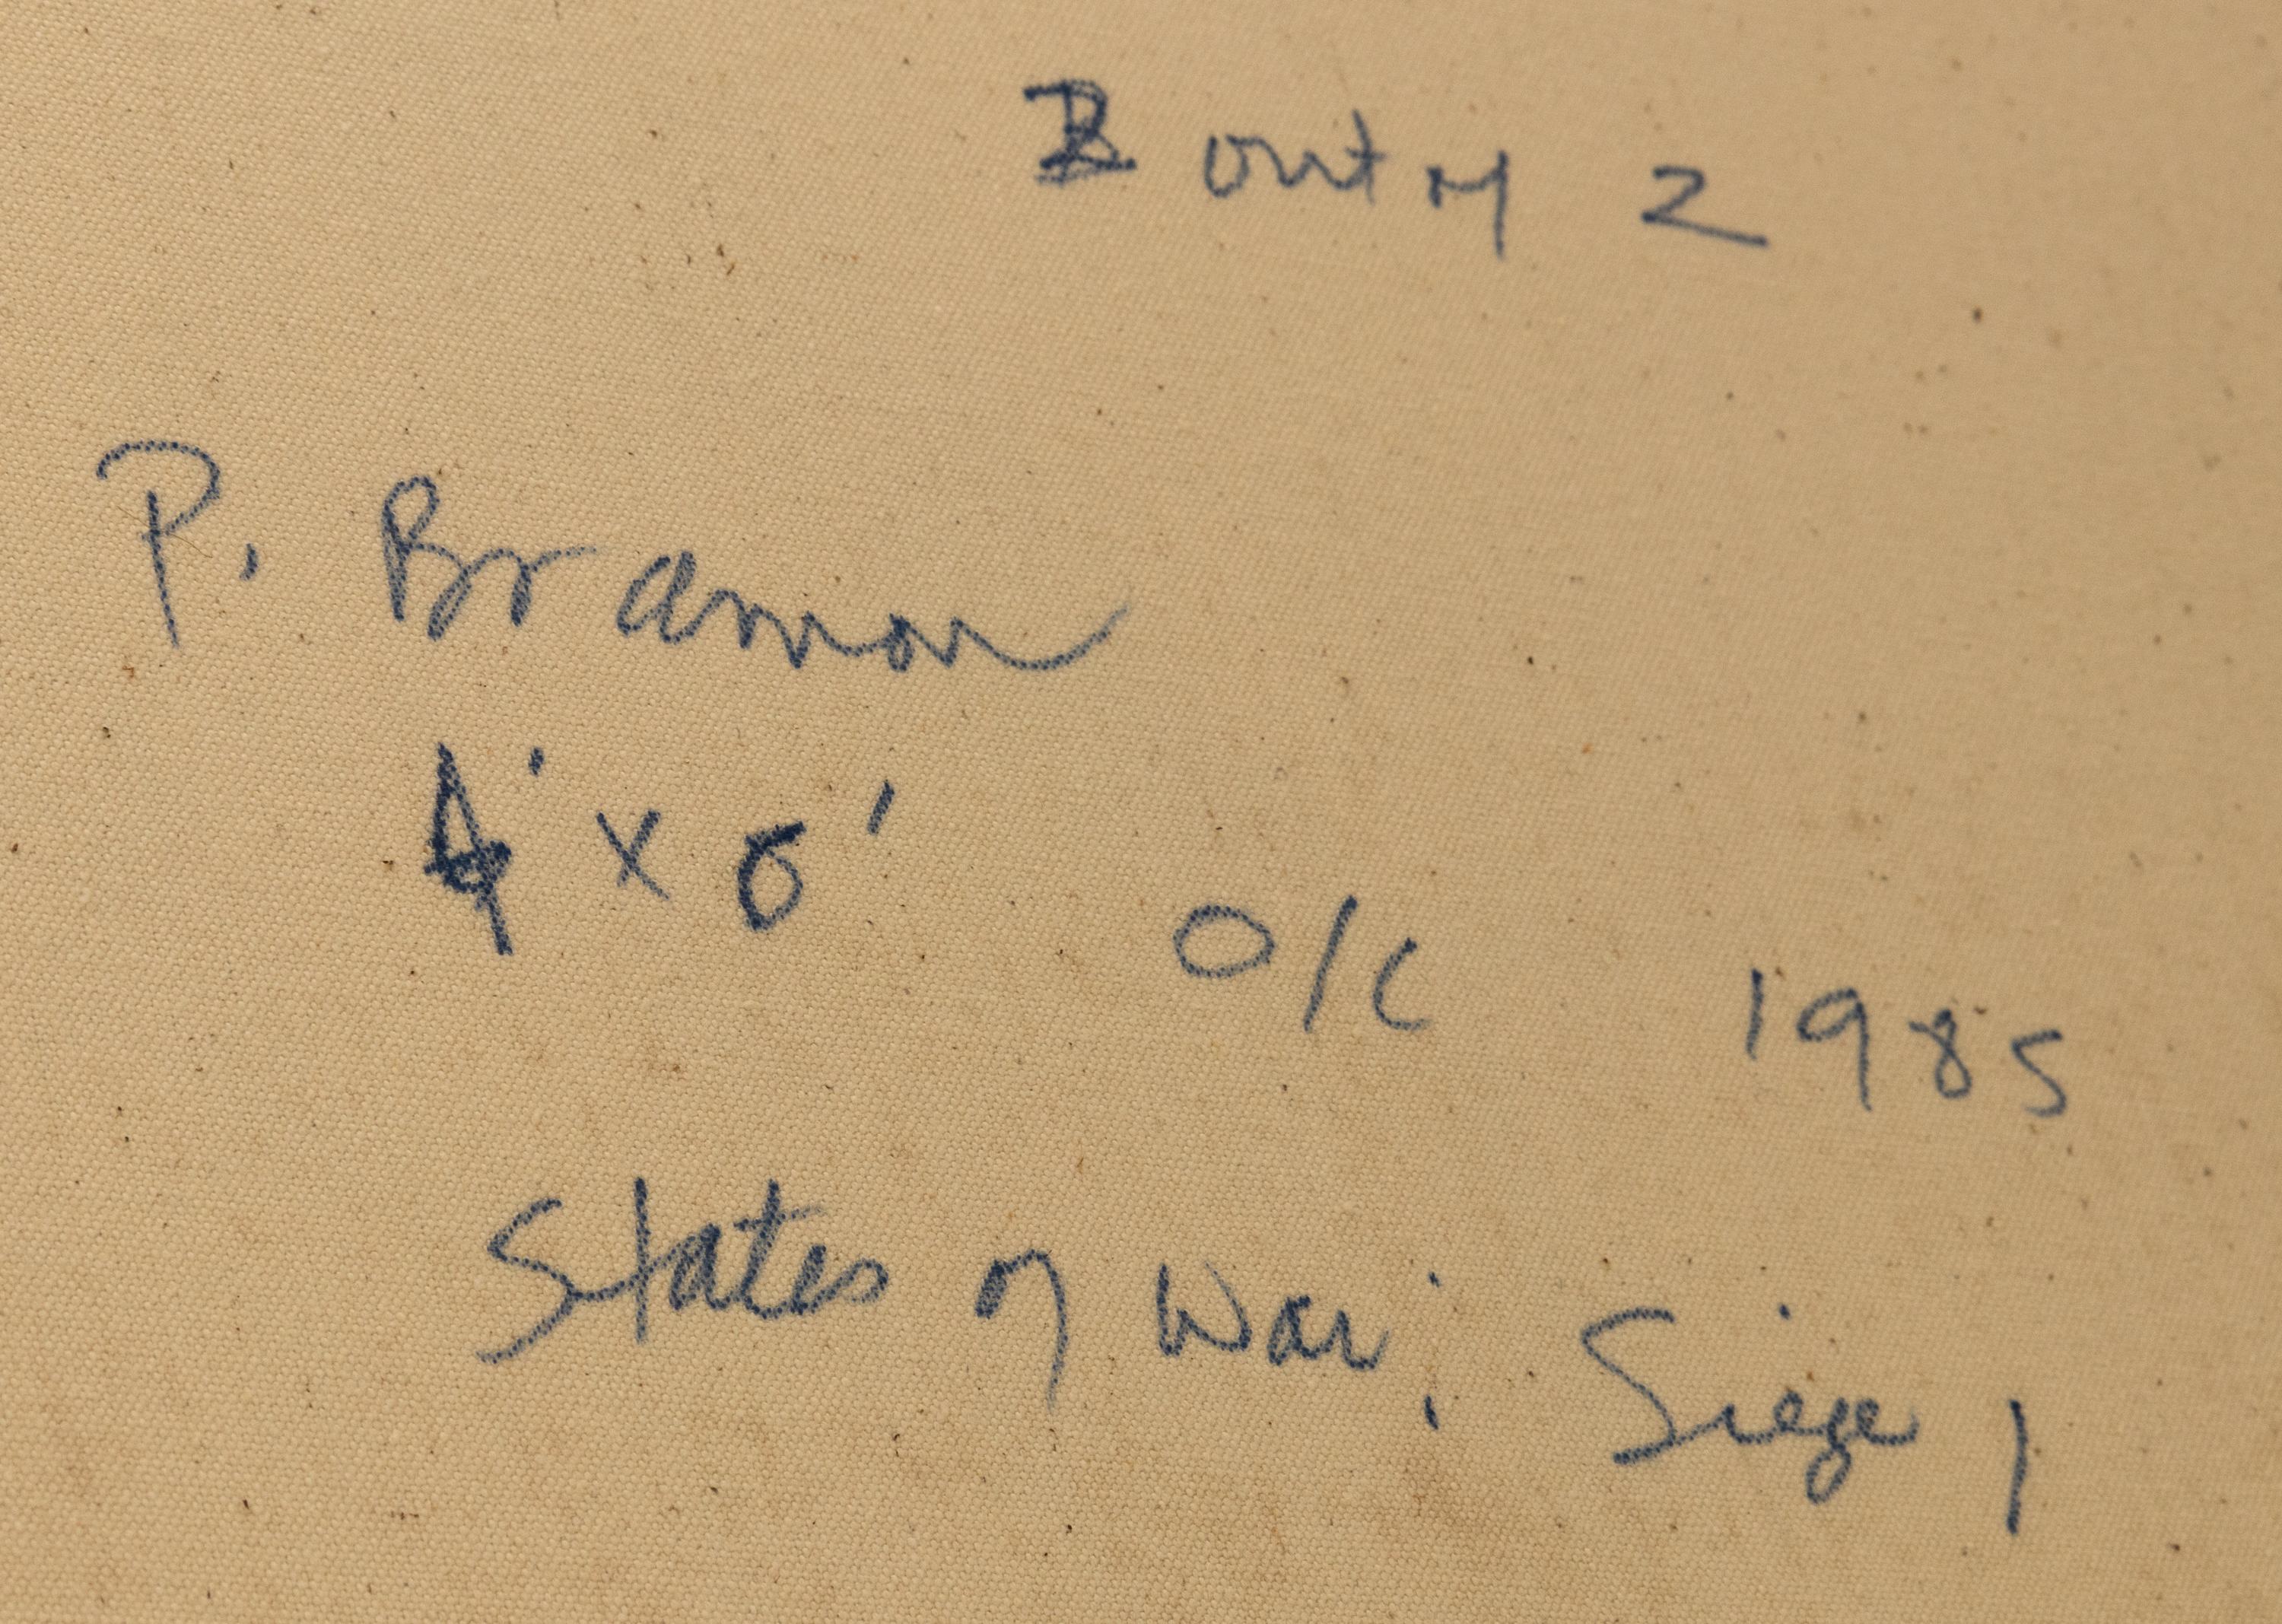 B out of 2
P. Braman
4' x 6' O/C 1985
States of War: Siege 1